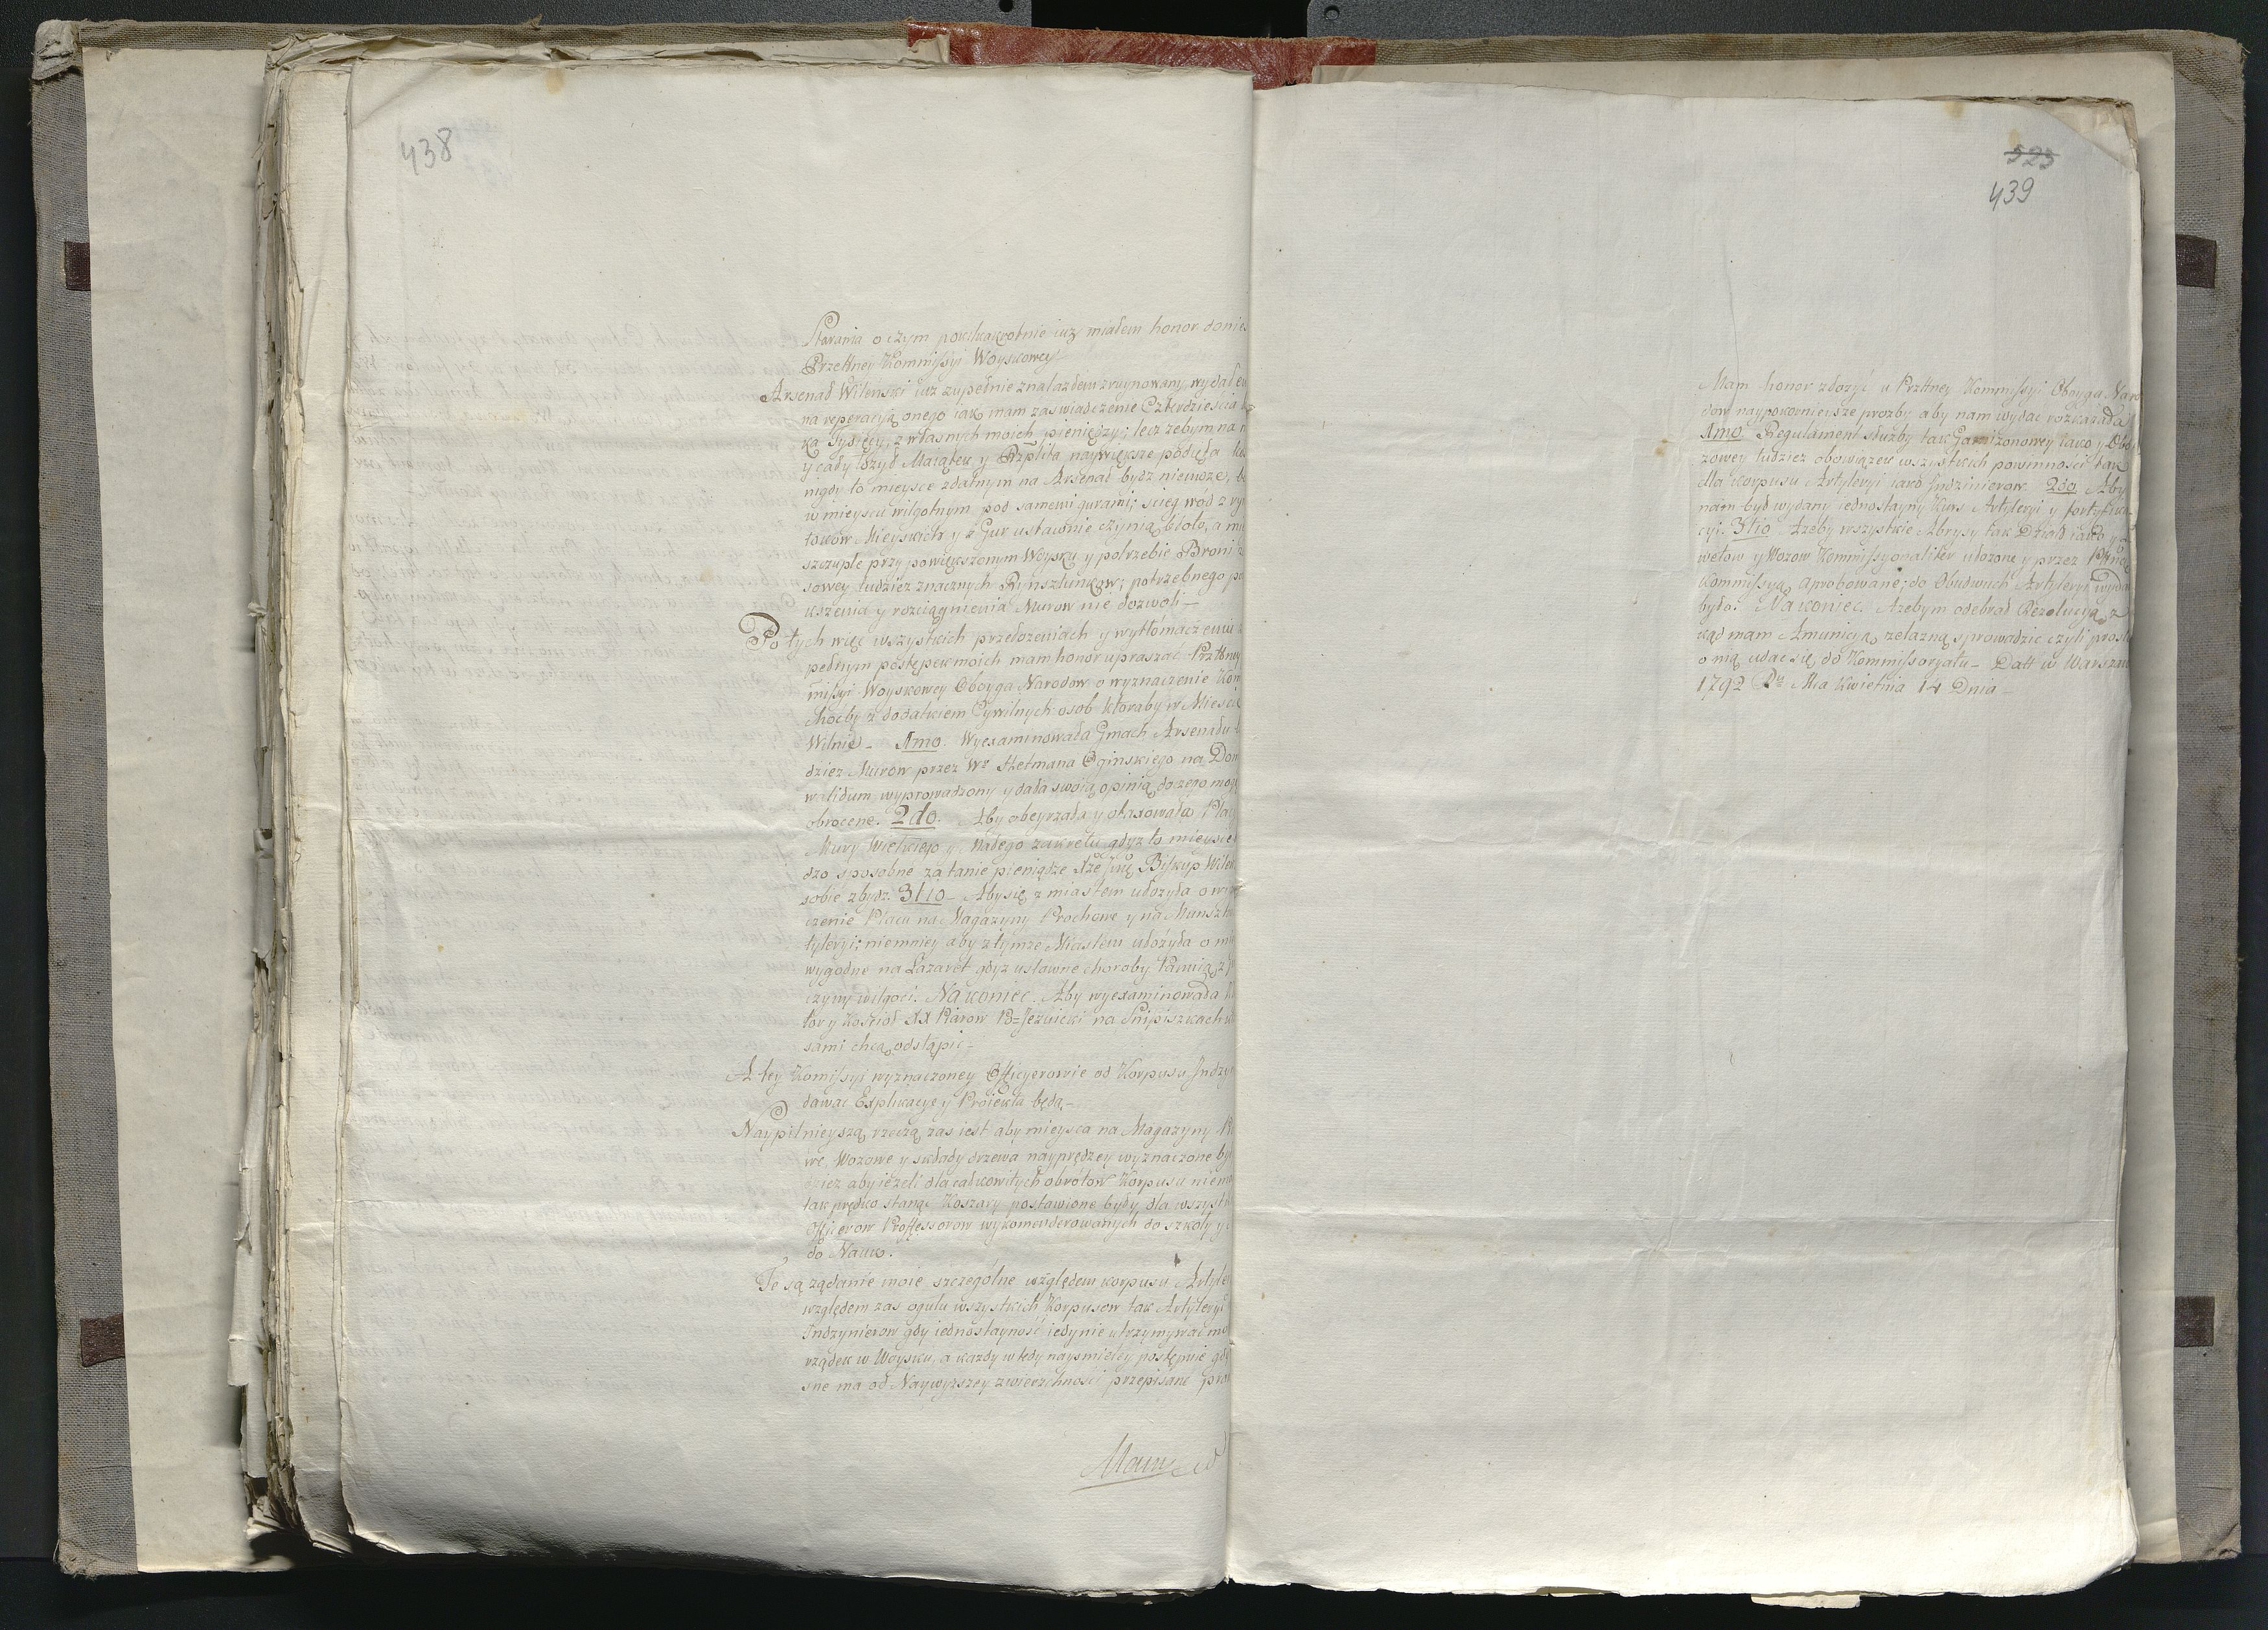 438
Starania o czym powilkakrotnie iuż miałem honor donieś
Przettney Kommissyi Woyskowey
Arsenał Wilenski iuż zupełnie znalazłem zruynowany, wydałem
na reperacyią onego iak mam zaswiadczenie Czterdziescia
ka Tysięcy, z własnych moich pieniędzy; lecz żebym na
y cały Szyd Maiątek y Rzplita naywiększe podięła
nigdy to mieysce zdatnym na Arsenał bydz niemoże, b
w mieyscu wilgotnym pod samemi gurami; scieg wod z ry
tokow Mieyskich y z Gur ustawnie czynią błoto, a mu
szczupłe przy powiększonym Woysku y potrzebie Broni
sowey tudziez znacznych Rynsztunkow; potrzebnego po
kszenia y rozciągnienia Murow nie dozwoli –
Po tych więc wszystkich przełożeniach y wytłómaczeniu z
pełnym postępkow moich mam honor upraszać Przttney
missyi Woyskowey Oboyga Narodow o wyznaczenie Kom
choćby z dodatkiem Cywilnych osob ktoraby w Miescie
Wilnie – 1mo. Wyexaminowała Gmach Arsenału
dziez Murow przez Wo Hetmana Oginskiego na Dom
walidum wyprowadzony y dała swoią opinią do czego mog
obrocene. 2do. Aby obeyrzała y otaxowała Plac
Mury Wielkiego y Małego zakrętu gdyż to mieysce
dzo sposobne za tanie pieniądze Xże Jmć Biskup Wilen
sobie zbydz. 3tio – Aby się z miastem ułożyła o wyz
czenie Placu na Magazyny Prochowe y na Munsztr
tyleryi; niemniey aby z tymże Miastem ułożyła o mie
wygodne na Lazaret gdyż ustawne choroby panuią z p
czyny wilgoci. Nakoniec. Aby wyexaminowała K
tor y Kościoł XX Piarow P=Jezuicki na Snipiszkach k
sami chcą odstąpić –
A tey Komissyi wyznaczoney Officyerowie od Korpusu Jndzy
dawać Explikacye y Proiekta będą –
Naypilnieyszą rzeczą zas iest aby mieysca na Magazyny P
we, Wozowe y składy drzewa nayprędzey wyznaczone by
dziez aby ieżeli dla całkowitych obrotow Korpusu niemo
tak prędko stanąć Koszary postawione były dla wszystk
Officerow Proffessorow wykomenderowanych do szkoły y
do Nauk.
Te są żądanie moie szczegolne względem korpusu Artyler
względem zas ogułu wszystkich Korpusow tak Artyleryi
Indzynierow gdy iednostayność iedynie utrzymywać mo
rządek w Woysku, a każdy wtedy naysmieley postępuie gdy
sne ma od Naywyższey zwierzchności przepisane pra
Mam
525
439
Mam honor złożyć u Przttney Kommissyi Oboyga Naro
dow naypokornieysze prozby aby nam wydac rozkazała
1mo. Regulament służby tak Garnizonowey iako y Obo
zowey tudziez obowiązek wszystkich powinności tak
dla Korpusu Artyleryi iako Jndzinierow 2do Aby
nam był wydany iednostayny Kurs Artyleryi y fortyfika
cyi. 3tio Ażeby wszystkie Abrysy tak Dział iako y La
wetow y Wozow Kommissyonaliter ułożone y przez Pttną
Kommissyą Aprobowane; do Obudwuch Artyleryi wydane
było. Nakoniec. Ażebym odebrał Rezolucyią z
kąd mam Amunicyą żelazną sprowadzić czyli prosto
o nią udac się do Kommissoryatu – Datt w Warszaw
1792 Ru Mca Kwietnia 14 Dnia –